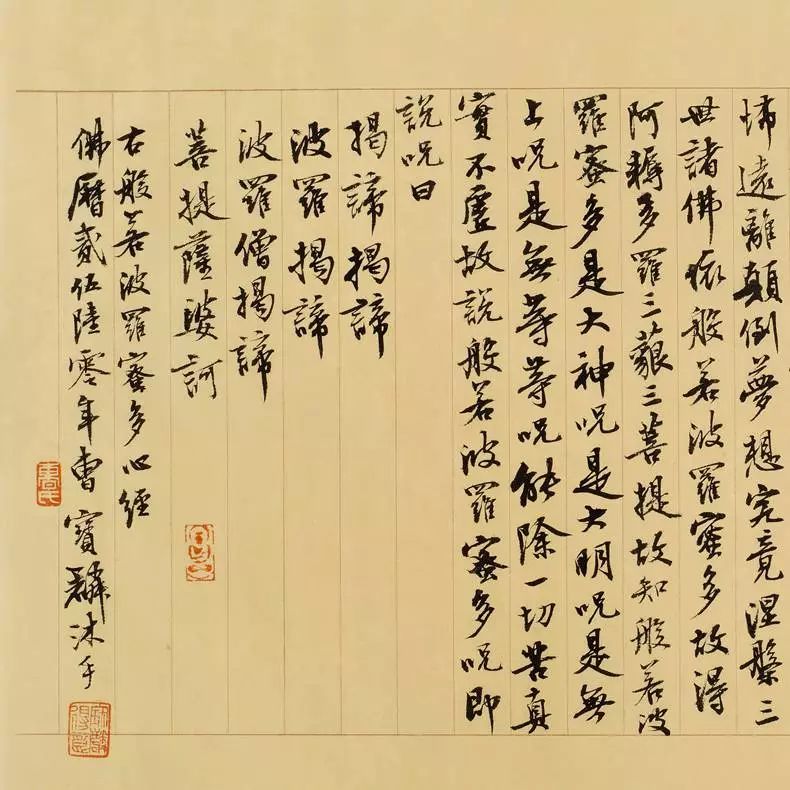 怖遠離顛倒夢想究竟涅槃三
世諸佛依般若波羅蜜多故得
阿耨多羅三藐三菩提故知般若波
羅蜜多是大神呪是大明呪是無
上呪是無等等呪能除一切苦真
實不虛故說般若波羅蜜多呪即
說呪曰
揭諦揭諦
波羅揭諦
波羅僧揭諦
菩提薩婆訶
右般若波羅蜜多心經
佛曆貳伍陸零年曹寶麟沐手